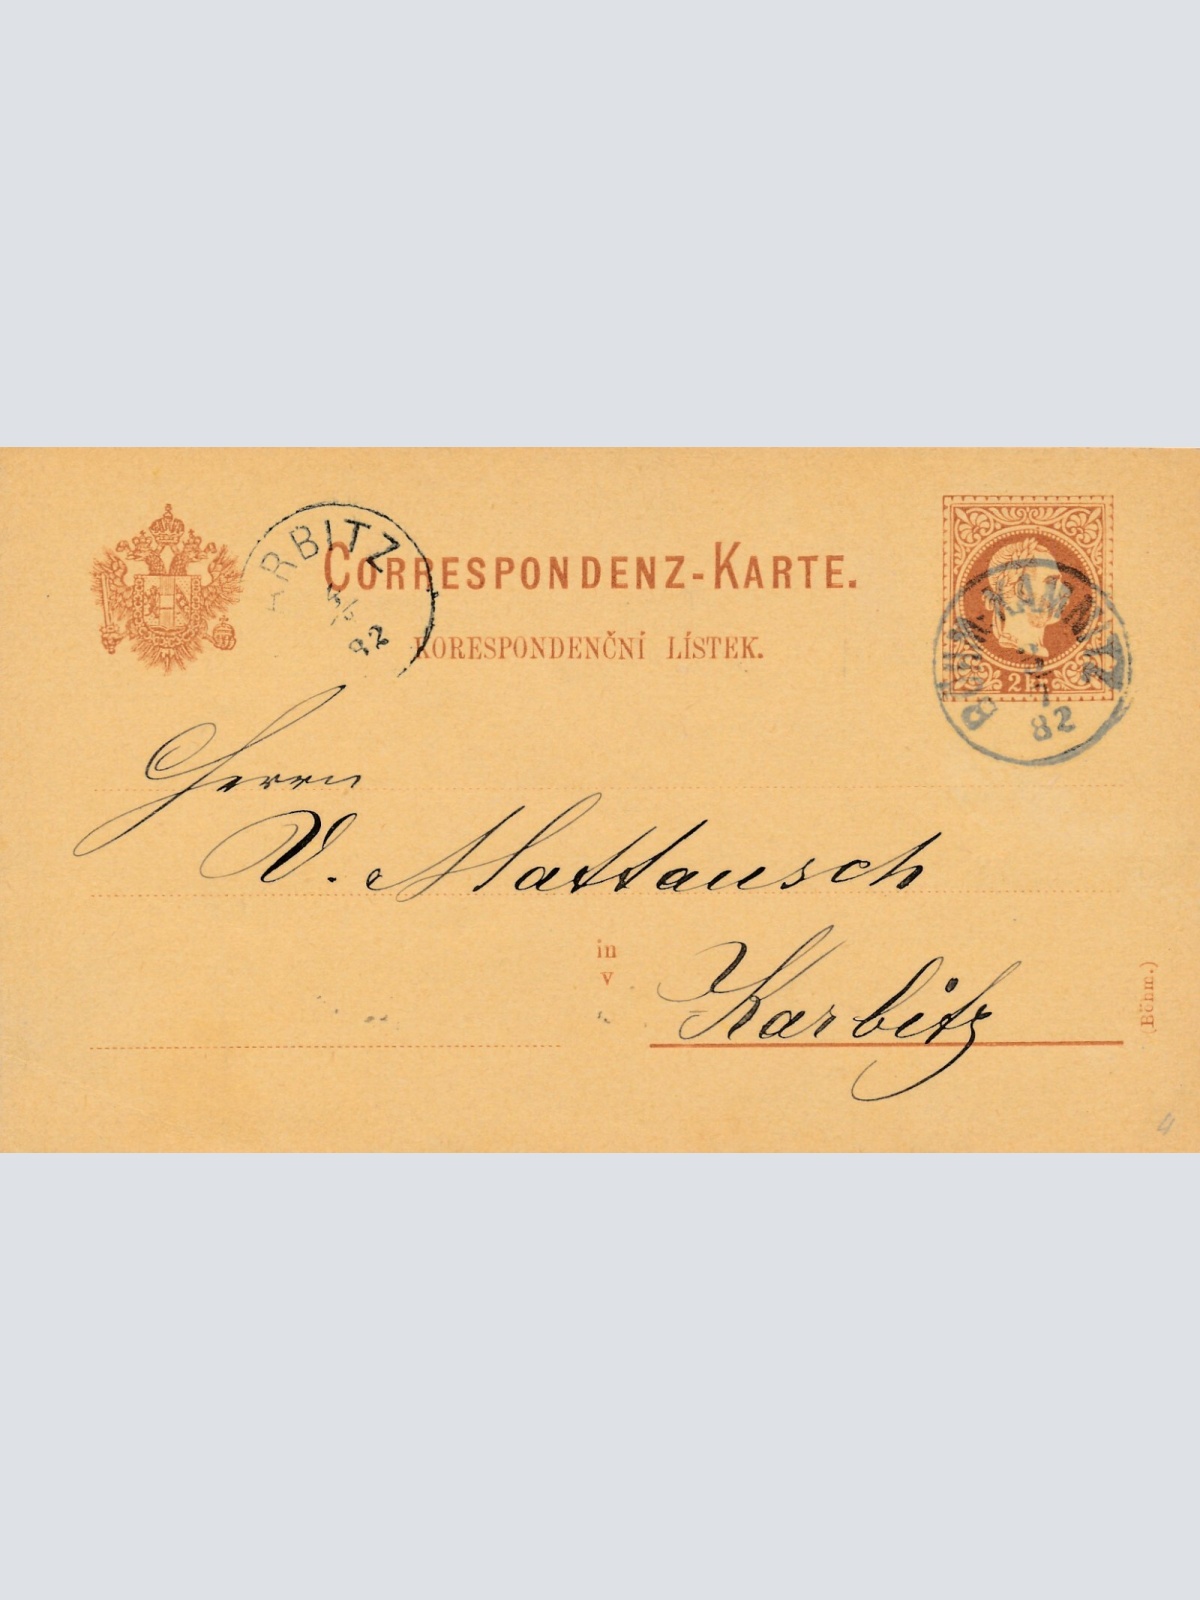 CORRESPONDENZ-KARTE.
KORESPONDENČNÍ LÍSTEK.
ARBITZ
82
BÖHM. KAMNITZ
3
7
82
2 Kr.
Herrn
V. Mattausch
in
v
Karbitz
(Böhm.)
4